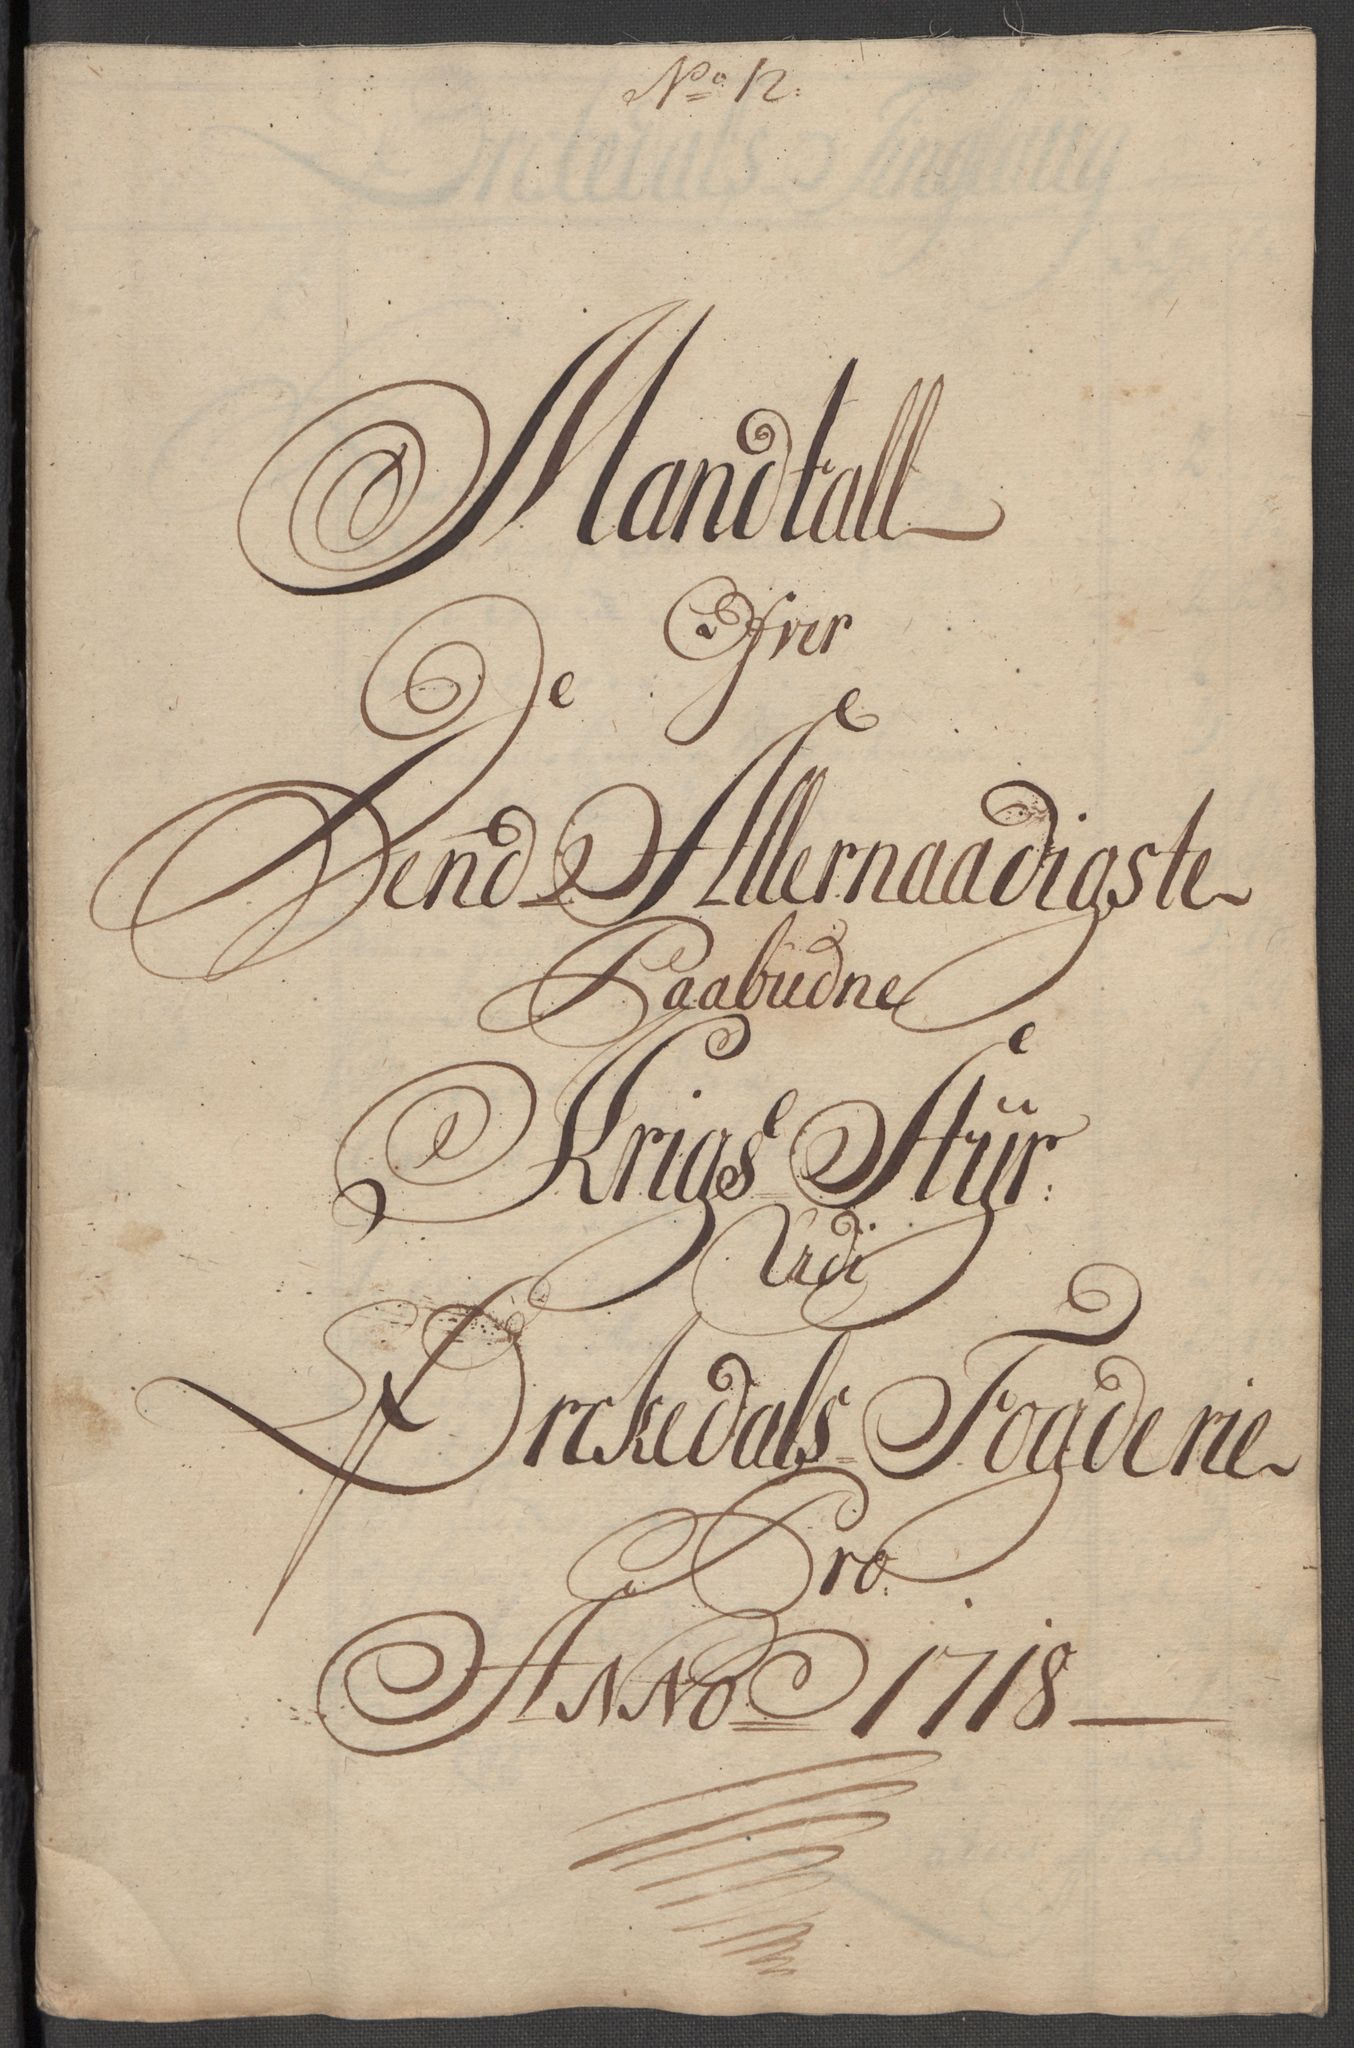 No 12.
Mandtall
Ofver
Dend Allernaadigste
Paabudne
Krigs Styr.
Udi
Orckedals Fogderie
Pro.
Anno 1718